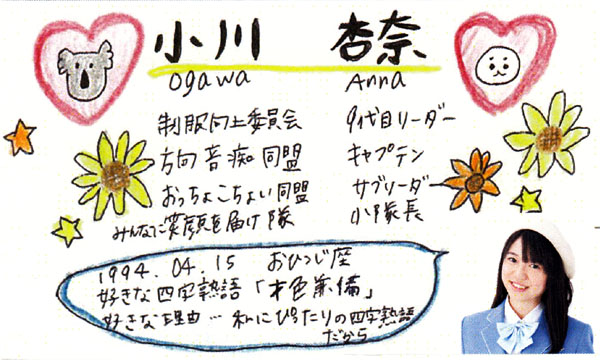 小川 杏奈
Ogawa Anna
制服向上委員会 9代目リーダー
方向音痴同盟 キャプテン
おっちょこちょい同盟 サブリーダー
みんなに笑顔を届け隊 小隊長
1994.04.15 おひつじ座
好きな四字熟語「才色兼備」
好きな理由…私にぴったりの四字熟語
だから